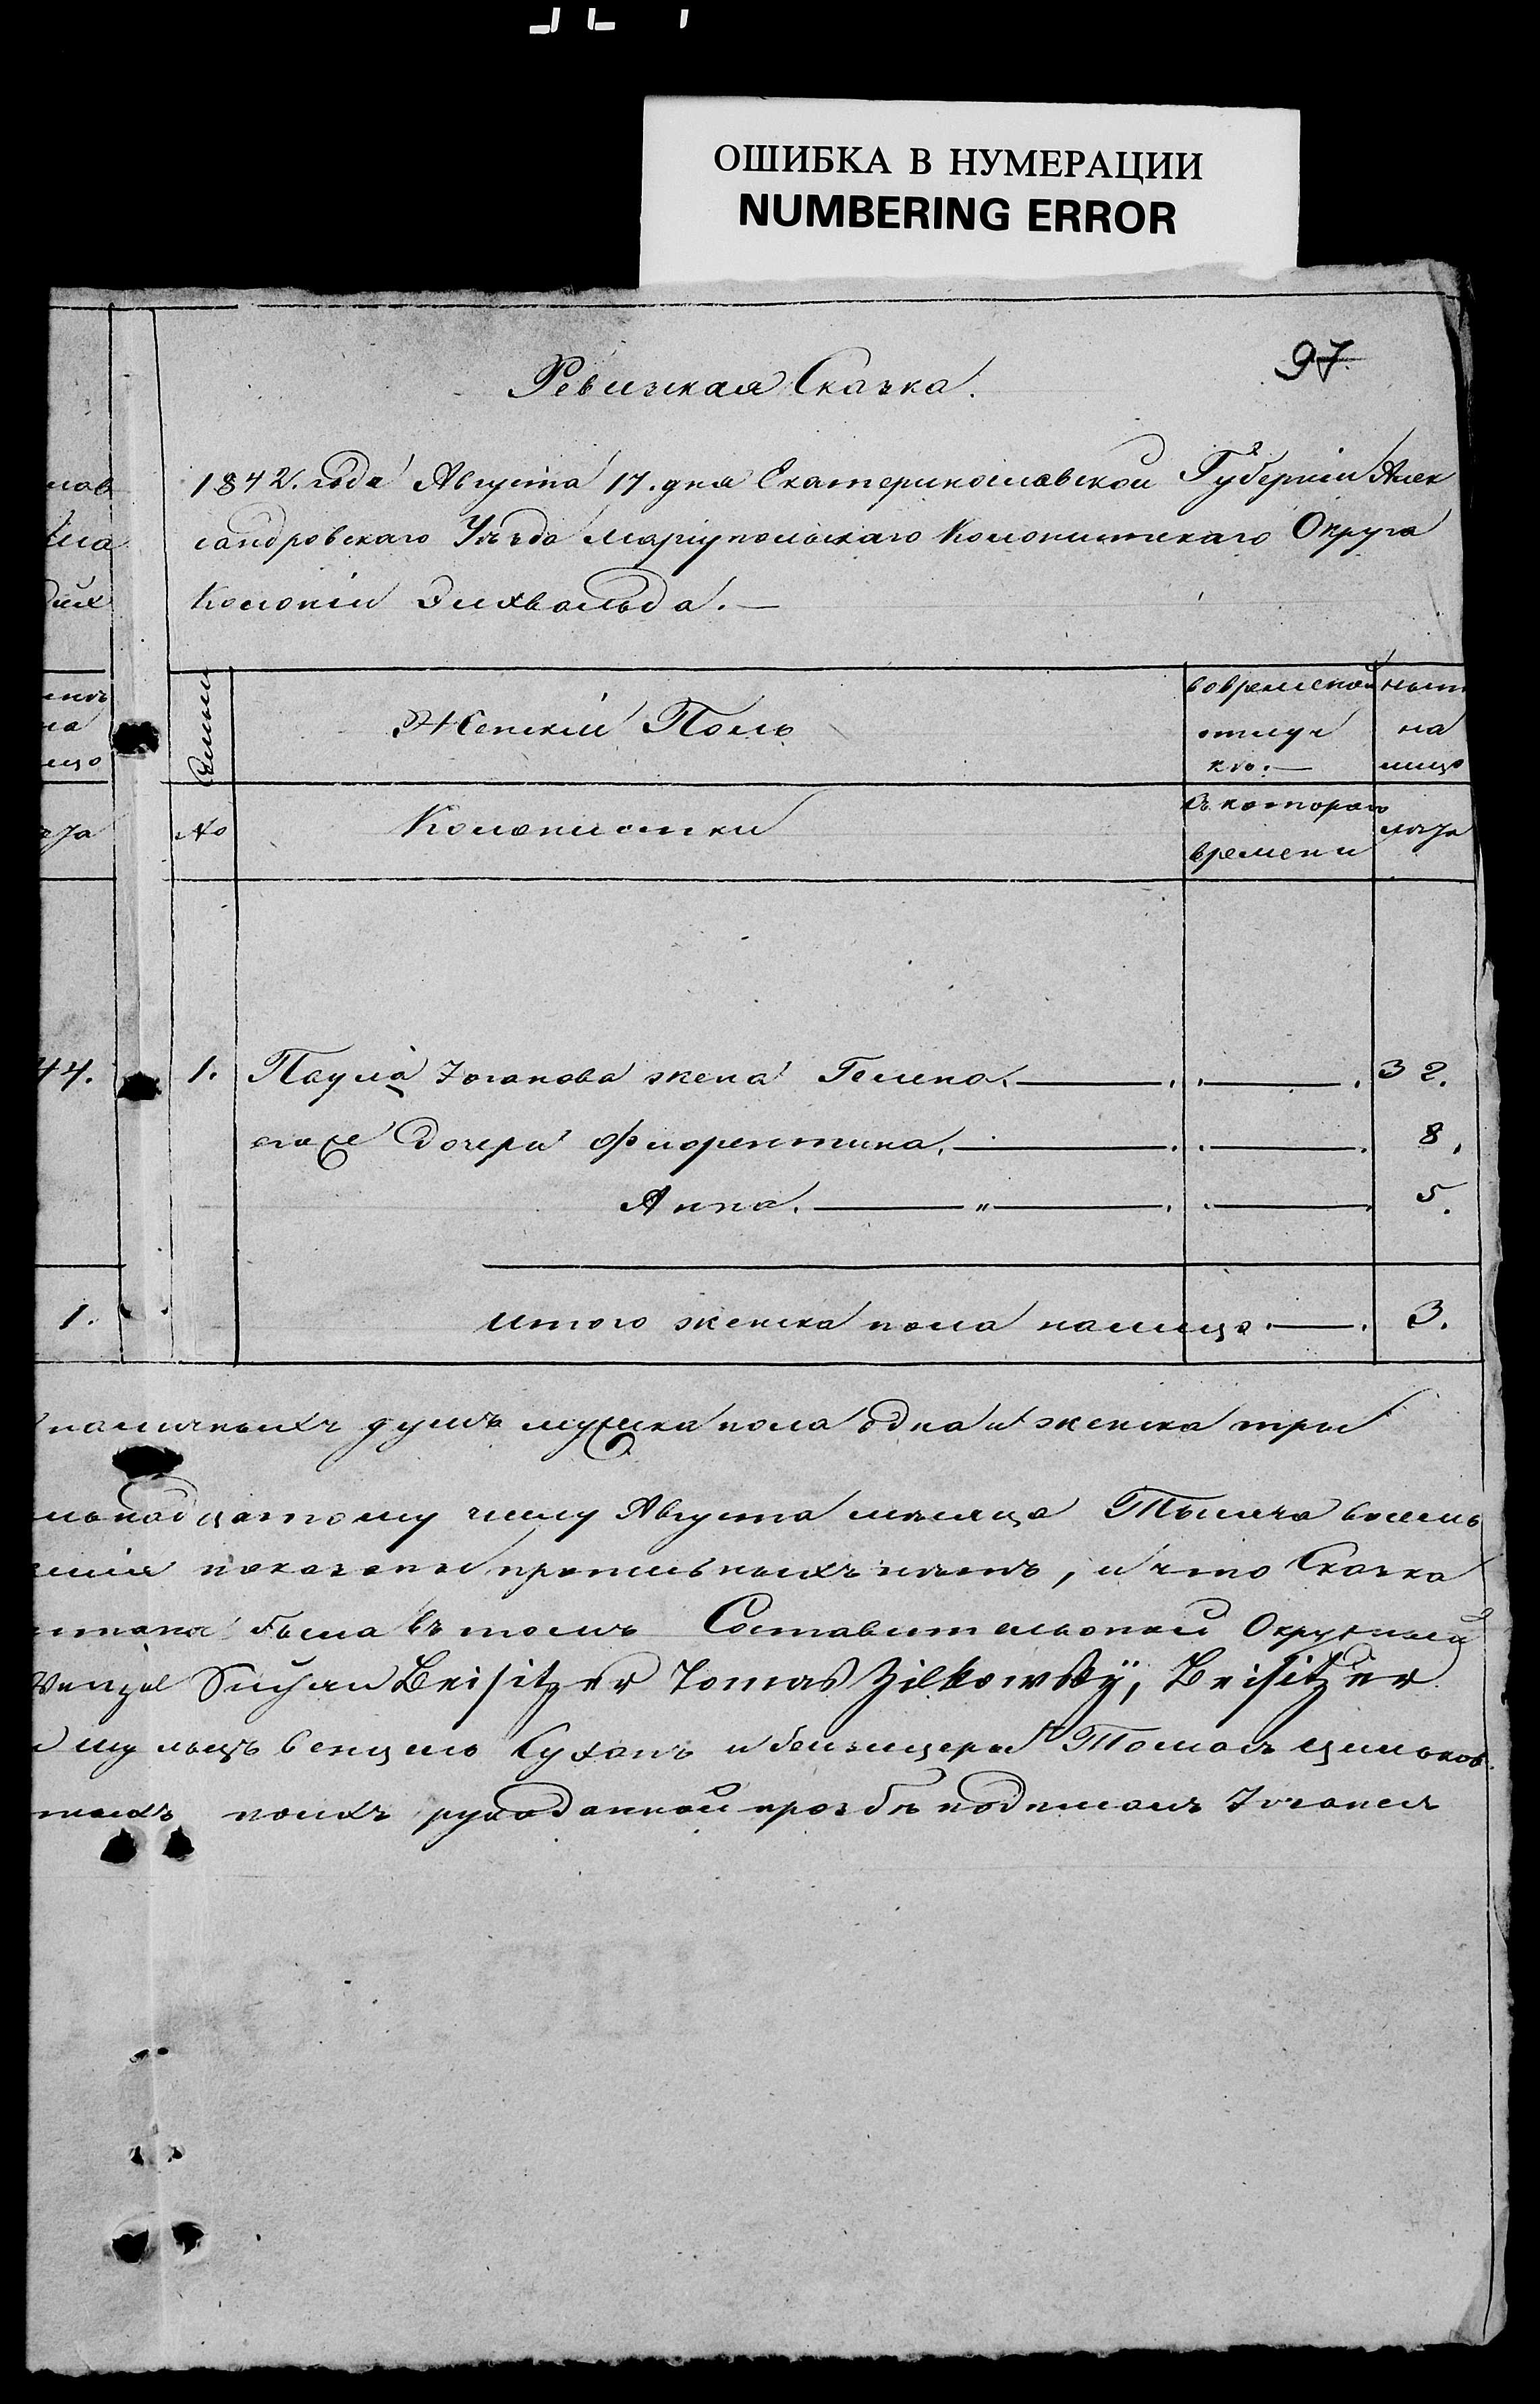 ОШИБКА В НУМЕРАЦИИ
NUMBERING ERROR
97.
Ревизкая Сказка.
1842. года Августа 17. дня Екатеринославской Губерніи Алек
сандровскаго Уѣзда Маріупольскаго Колонистскаго Округа
Колоніи Эихвальда.—
Семьи
Женскій Полъ
вовременой
отлуч
ке.—
нынѣ
на
лицо
№
Колонистки
Съ котораго
времени
лѣта
44.
1. Паула Іоганова жена Гелена. 32.
егоже Дочери Флорентина. 8.
Анна. " 5.
1.
итого женска пола налицо. 3.
наличныхъ душъ мужска пола одна и женска три
надцатому числу Августа мѣсяца Тысяча восемь
показаны противъ ныхъ лѣтъ, и что Сказка
была въ томъ Составительный Окружный
Wenzel Suchan Beisitzer Tomas Zilkowsky, Beisitzer
Венцель Суханъ и беизицеры Томасъ Цильков
ныхъ поихъ рукоданной прозбѣ подписалъ Іоганесъ